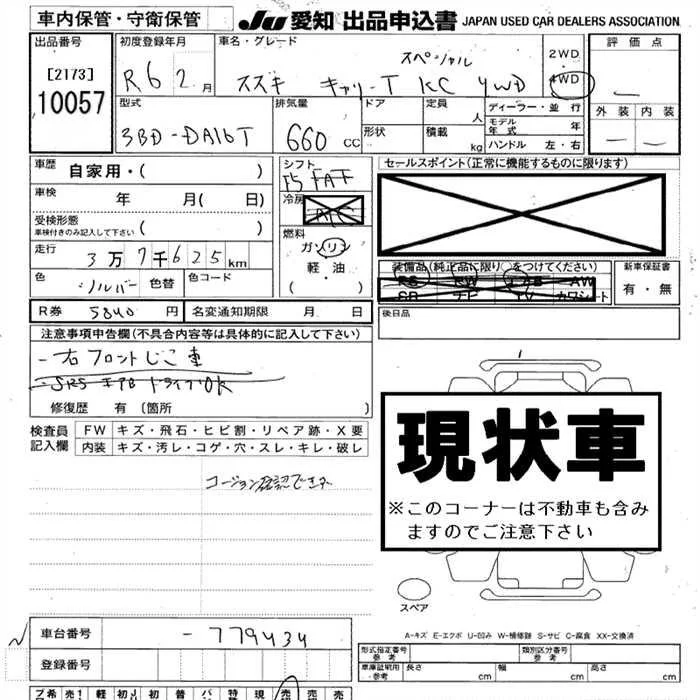 車内保管・守衛保管
JU 愛知 出品申込書 JAPAN USED CAR DEALERS ASSOCIATION
出品番号
[2173]
10057
初度登録年月
R6 2月
車名・グレード
スペシャル
スズキ キャリーT KC 4WD
2WD
4WD
評価点
外装 内装
型式
3BD-DA16T
排気量
660 CC
ドア
形状
定員 人
積載 kg
ディーラー・並行
モデル年式 年
ハンドル 左・右
車歴 自家用・( )
車検 年 月( 日)
受検形態
車検付きのみ記入して下さい ( )
走行 3万7千625km
色 シルバー 色替 色コード
シフト
F5 FAT
冷房
A/C
燃料
ガソリン
軽・油
( )
セールスポイント(正常に機能するものに限ります)
装備品(純正品に限り○をつけてください)
PS PW ナビ TV カワシート AW SR
新車保証書
有・無
R券 5840円 名変通知期限 月 日
後日品
注意事項申告欄(不具合内容等は具体的に記入して下さい)
右フロントじこ車
SRS エアB ドライブOK
修復歴 有〔箇所 〕
検査員記入欄
FW キズ・飛石・ヒビ割・リペア跡・X要
内装 キズ・汚レ・コゲ・穴・スレ・キレ・破レ
コーション確認できず
現状車
※このコーナーは不動車も含みますのでご注意下さい
スペア
A-キズ E-エクボ U-凹み W-補修跡 S-サビ C-腐食 XX-交換済
車台番号 -779434
登録番号
型式指定番号
参考
類別区分番号
参考
車庫証明用
参考
長さ cm 幅 cm 高さ cm